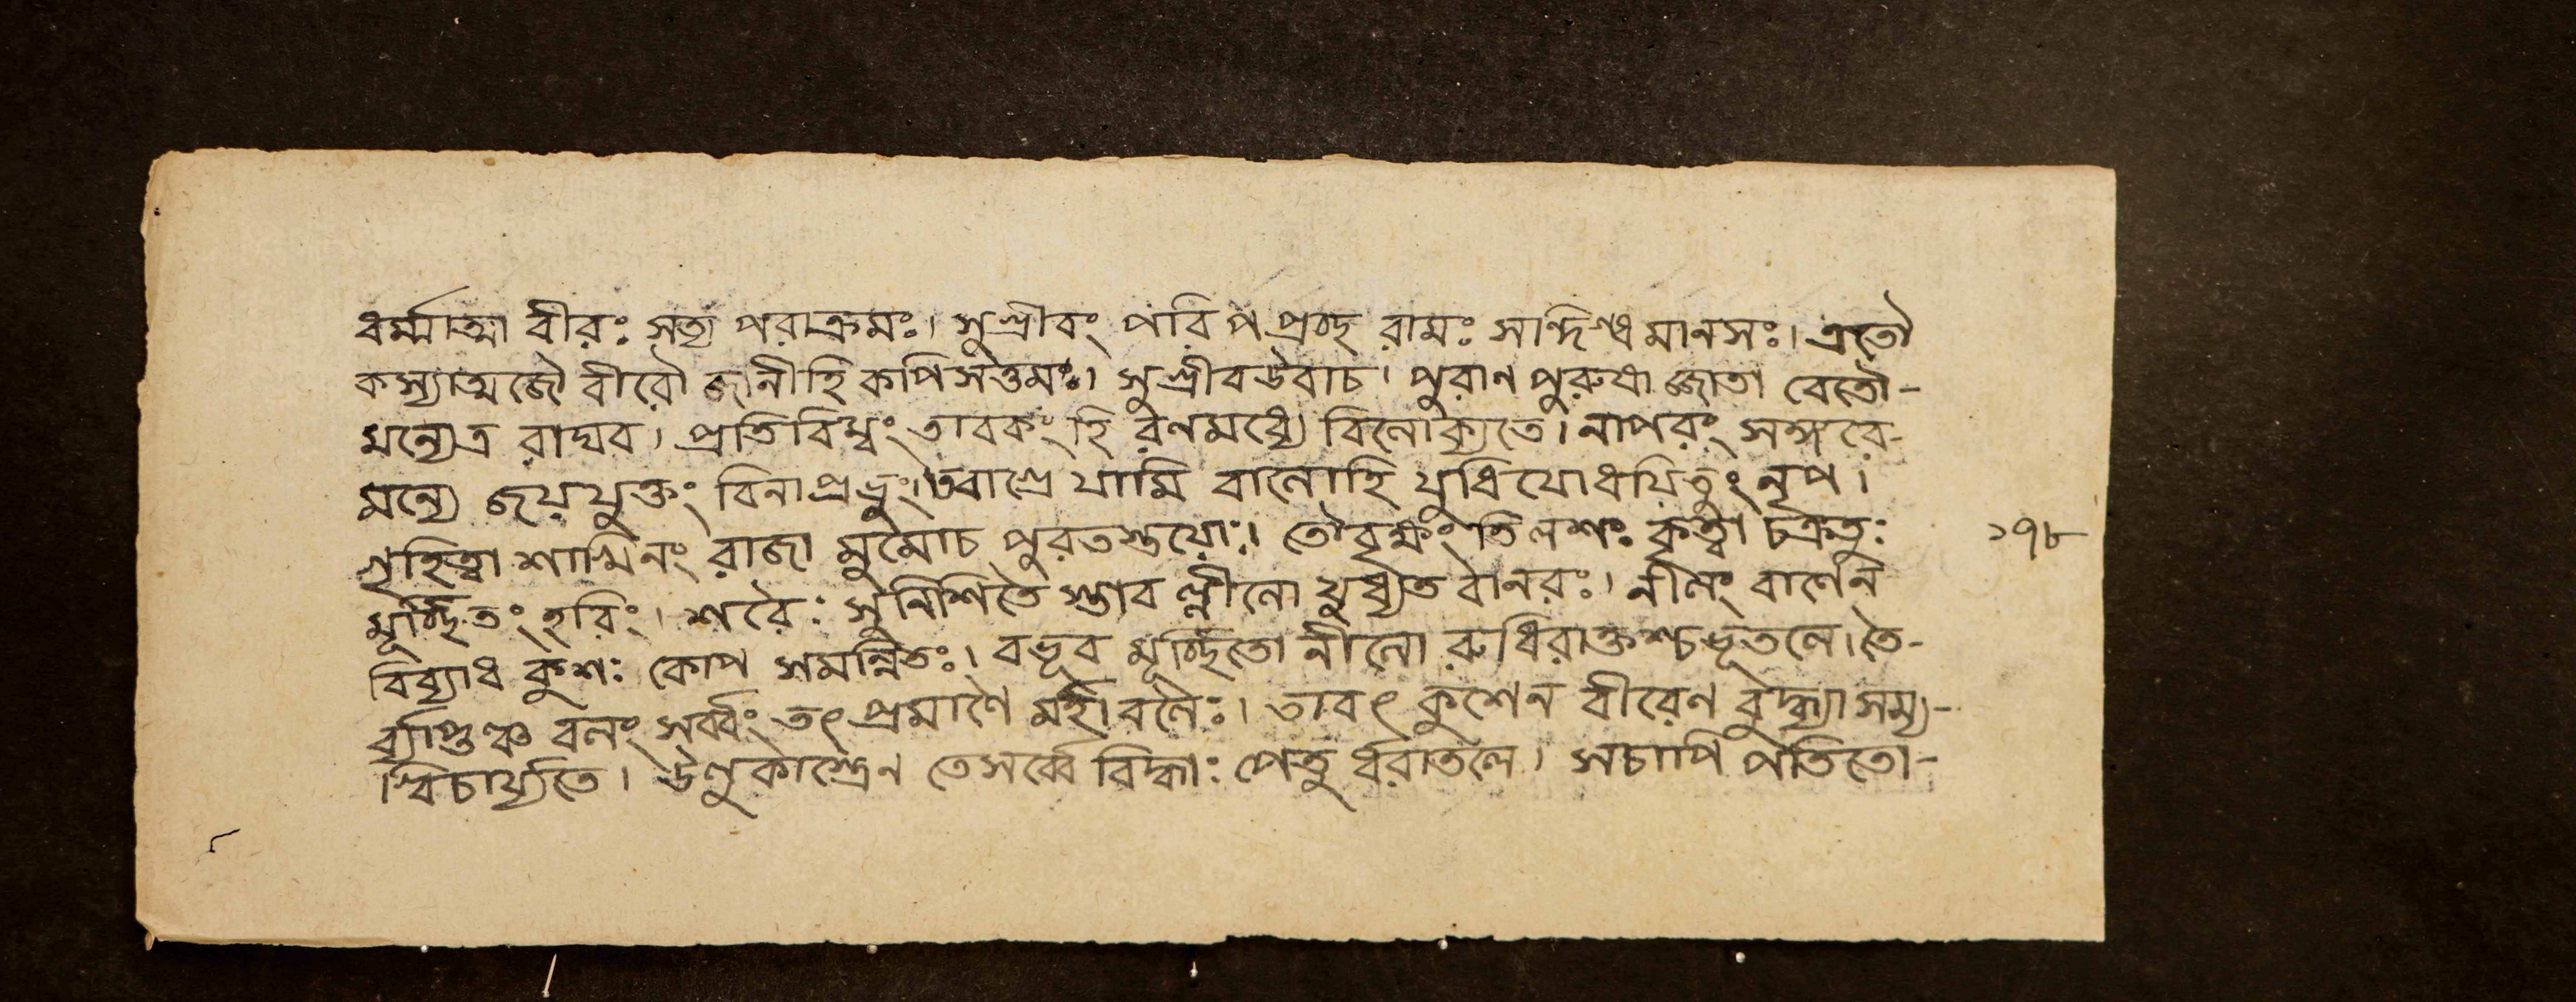 ধর্ম্মাত্মা বীরঃ সত্য পরাক্রমঃ। সুগ্রীবং পরি পপ্রচ্ছ রামঃ সন্দিগ্ধ মানসঃ। এতৌ
কস্যাত্মজৌ বীরৌ জানীহি কপিসত্তমঃ। সুগ্রীবউবাচ। পুরাণ পুরুষা জ্জাতা বেতৌ-
মন্যেত্র রাঘব। প্রতিবিম্বং তাবকং হি রণমধ্যে বিলোক্যতে। নাপরং সঙ্গরে-
মন্যে জয়যুক্তং বিনাপ্রভুং। যামি বালোহি যুধিযোধয়িতুং নৃপ।
গৃহিত্বা শাল্মিনং রাজা মুমোচ পুরতস্তয়োঃ। তৌবৃক্ষং তিলশঃ কৃত্বা চক্রতুঃ ১৭৮
মূর্চ্ছিতং হরিং। শরৈঃ সুনিশিতৈ স্তাব ন্নীলো যুধ্যত বানরঃ। নীলং বাণেন
বিব্যাধ কুশঃ কোপ সমন্বিতঃ। বভূব মূর্চ্ছিতো নীলো রুধিরাক্তশ্চভূতলে। তৈ-
ব্যাপ্তঞ্চ বলং সর্ব্বং তৎ প্রমাণৈ র্মহাবলৈঃ। তাবৎ কুশেন বীরেণ বুদ্ধ্যা সম্য-
গ্বিচার্য্যতে। তেসর্ব্বে বিদ্ধাঃ পেতু র্ধরাতলে। সচাপি পতিতো-